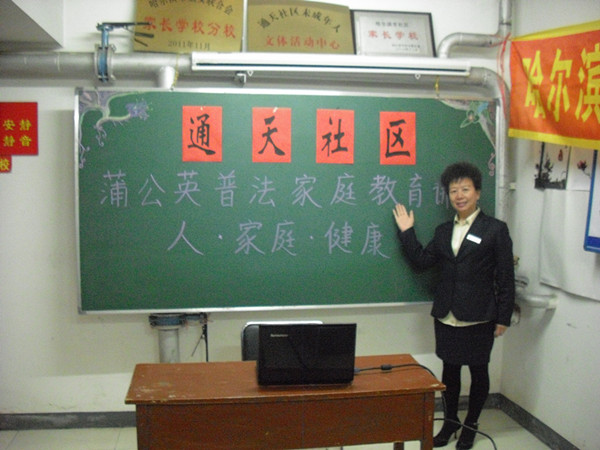 家长学校分校
2011年11月
通天社区未成年人
文体活动中心
家长学校
哈尔滨
安静
静音
通天社区
蒲公英普法家庭教育讲
人·家庭·健康
lenovo